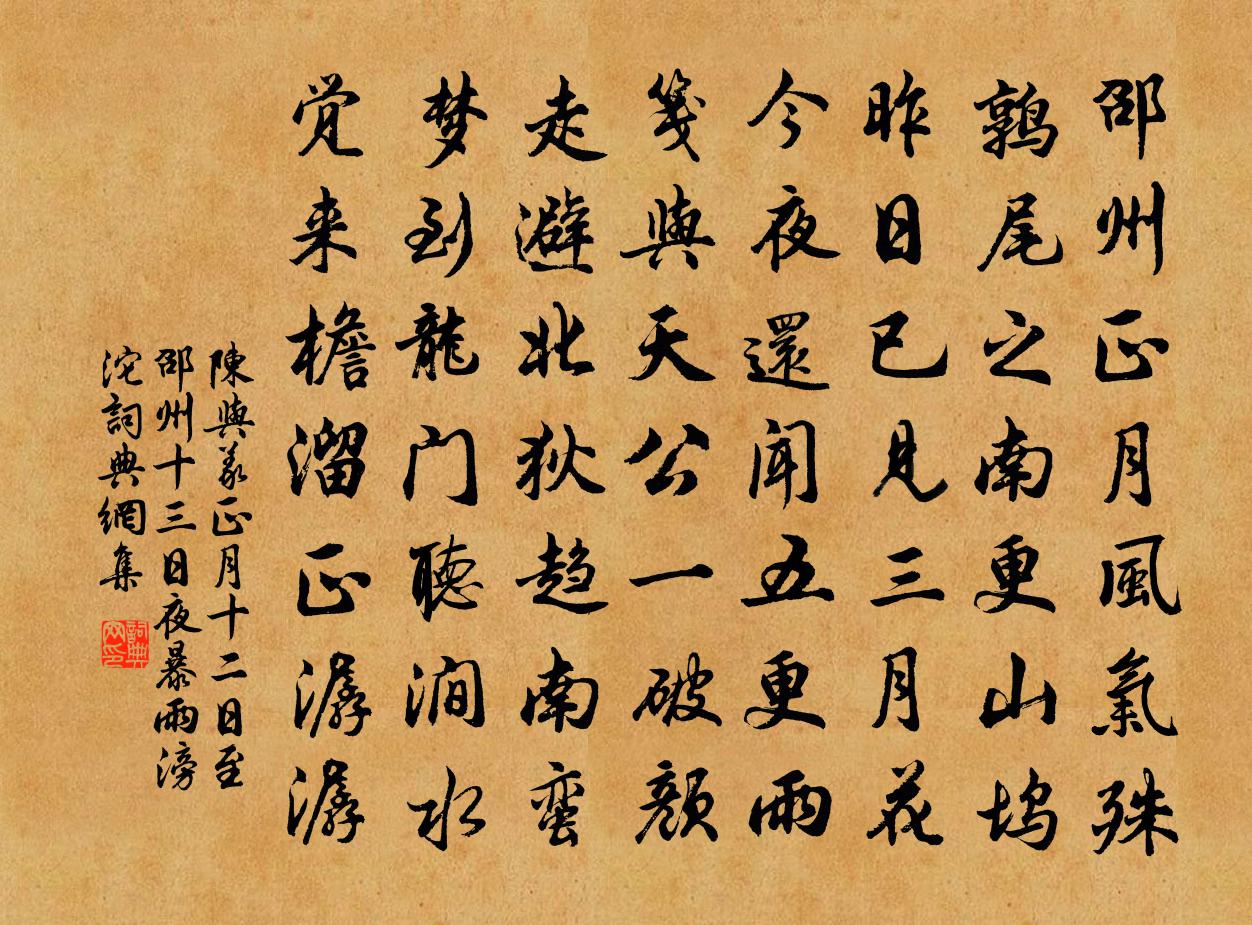 邵州正月風氣殊
鶉尾之南更山坞
昨日已見三月花
今夜還聞五更雨
笺與天公一破顔
走避北狄趋南蛮
梦到龍门聽澗水
觉来檐溜正潺潺
陳與義正月十二日至
邵州十三日夜暴雨滂
沱詞典網集
詞典
网印